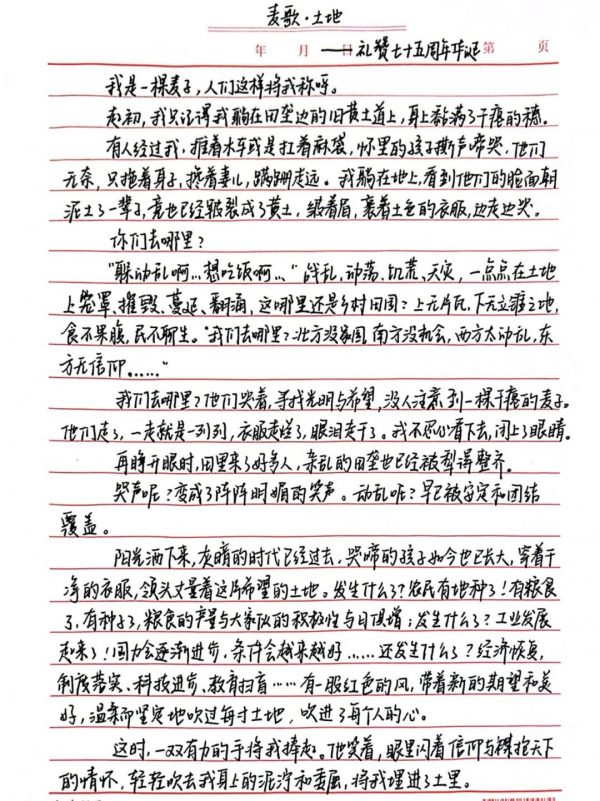 麦歌·土地
年 月 日 ——礼赞七十五周年华诞 第 页
我是一棵麦子，人们这样将我称呼。
起初，我只记得我躺在田垄边的旧黄土道上，身上黏满了干瘪的穗。
有人经过我，推着木车或是扛着麻袋，怀里的孩子撕声啼哭，他们
无奈，只拖着身子，搀着妻儿，蹒跚走远。我躺在地上，看到他们的脸面朝
泥土了一辈子，竟也已经皲裂成了黄土，皱着眉，裹着土色的衣服，边走边哭。
你们去哪里？
“躲动乱啊…想吃饭啊…”战乱，动荡、饥荒、天灾，一点点在土地
上笼罩、摧毁、蔓延、翻涌，这哪里还是乡村田园？上无片瓦，下无立锥之地，
食不果腹，民不聊生。“我们去哪里？北方没家园，南方没机会，西方太动乱，东
方无信仰……”
我们去哪里？他们哭着，寻找光明与希望，没人注意到一棵干瘪的麦子。
他们走了，一走就是一列列，衣服走烂了，眼泪走干了。我不忍心看下去，闭上了眼睛。
再睁开眼时，田里来了好多人，杂乱的田垄也已经被犁得整齐。
哭声呢？变成了阵阵明媚的笑声。动乱呢？早已被安定和团结
覆盖。
阳光洒下来，灰暗的时代已经过去，哭啼的孩子如今也已长大，穿着干
净的衣服，领头丈量着这片希望的土地。发生什么了？农民有地种了！有粮食
了，有种子了，粮食的产量与大家队的积极性与日俱增；发生什么了？工业发展
起来了！国力会逐渐进步，条件会越来越好……还发生什么了？经济恢复，
制度落实、科技进步、教育扫盲……有一股红色的风，带着新的期望和美
好，温柔而坚定地吹过每寸土地，吹进了每个人的心。
这时，一双有力的手将我捧起。他笑着，眼里闪着信仰与拥抱天下
的情怀，轻轻吹去我身上的泥泞和委屈，将我埋进了土里。